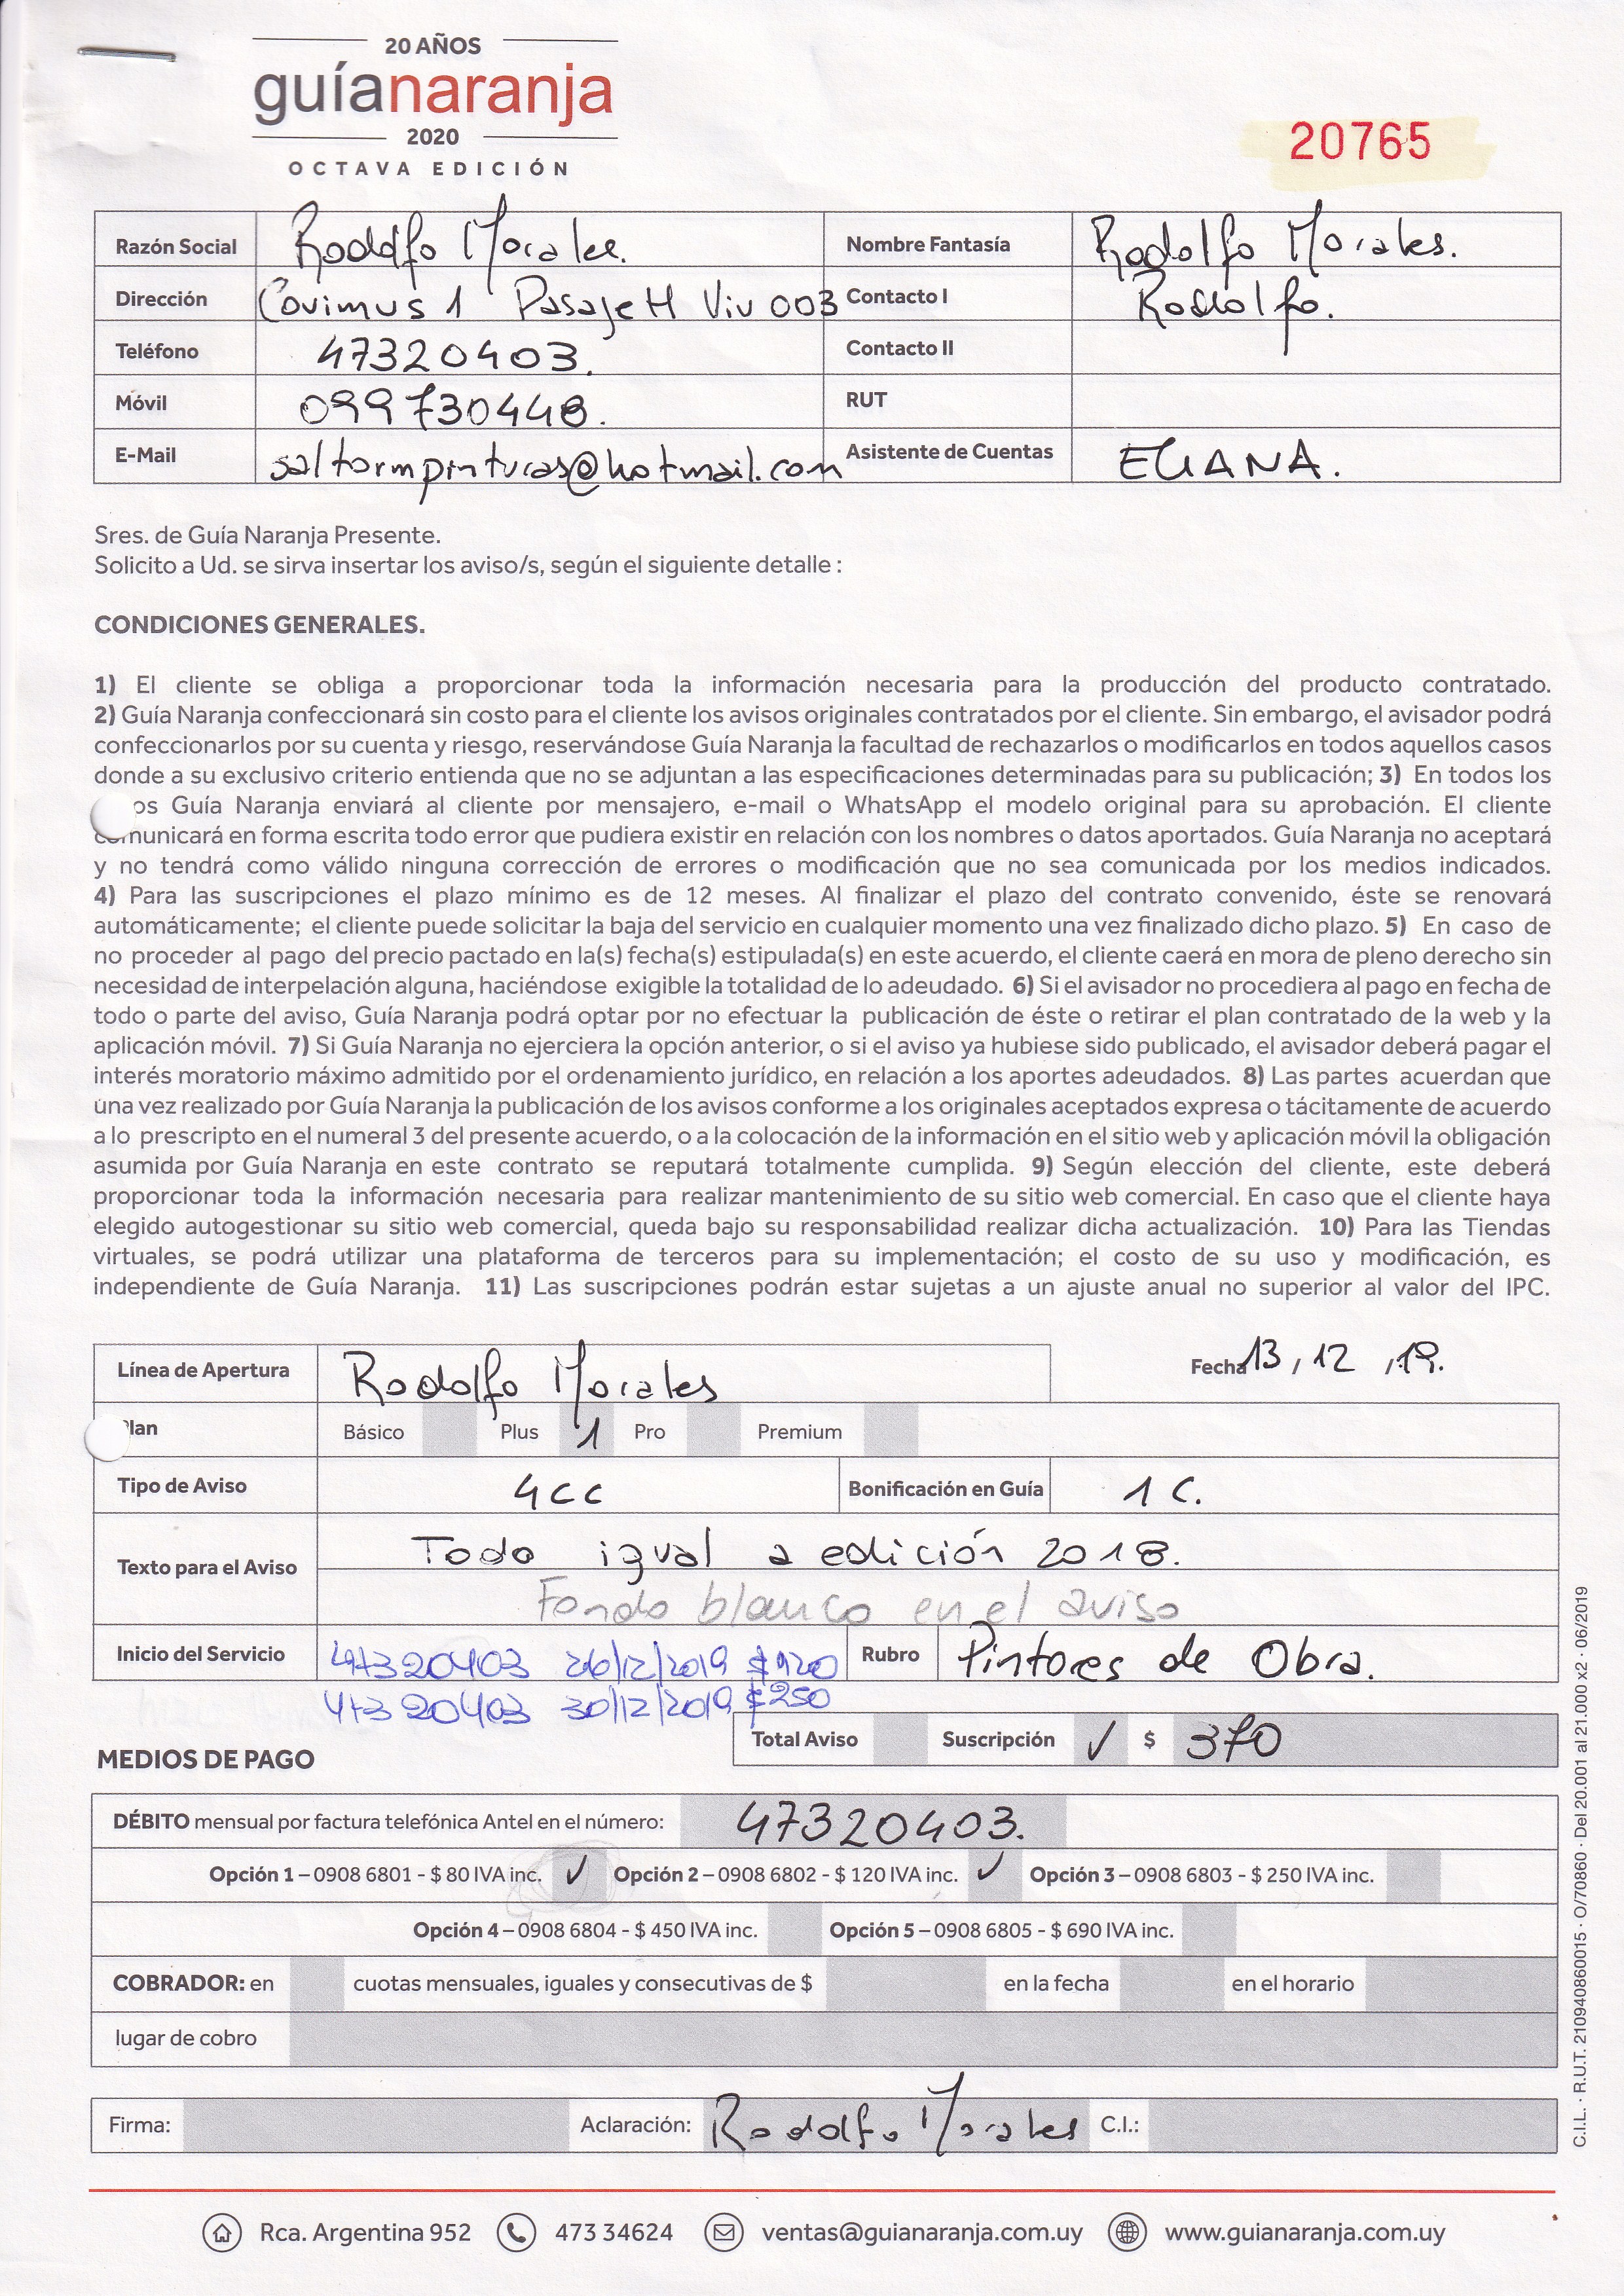 20 AÑOS
guíanaranja
2020
OCTAVA EDICIÓN
20765
Razón Social Rodolfo Morales. Nombre Fantasía Rodolfo Morales.
Dirección Covimus 1 Pasaje H Viv 003 Contacto I Rodolfo.
Teléfono 47320403. Contacto II
Móvil 099730448. RUT
E-Mail saltormpinturas@hotmail.com Asistente de Cuentas ELIANA.
Sres. de Guía Naranja Presente.
Solicito a Ud. se sirva insertar los aviso/s, según el siguiente detalle :
CONDICIONES GENERALES.
1) El cliente se obliga a proporcionar toda la información necesaria para la producción del producto contratado.
2) Guía Naranja confeccionará sin costo para el cliente los avisos originales contratados por el cliente. Sin embargo, el avisador podrá
confeccionarlos por su cuenta y riesgo, reservándose Guía Naranja la facultad de rechazarlos o modificarlos en todos aquellos casos
donde a su exclusivo criterio entienda que no se adjuntan a las especificaciones determinadas para su publicación; 3) En todos los
os Guía Naranja enviará al cliente por mensajero, e-mail o WhatsApp el modelo original para su aprobación. El cliente
comunicará en forma escrita todo error que pudiera existir en relación con los nombres o datos aportados. Guía Naranja no aceptará
y no tendrá como válido ninguna corrección de errores o modificación que no sea comunicada por los medios indicados.
4) Para las suscripciones el plazo mínimo es de 12 meses. Al finalizar el plazo del contrato convenido, éste se renovará
automáticamente; el cliente puede solicitar la baja del servicio en cualquier momento una vez finalizado dicho plazo. 5) En caso de
no proceder al pago del precio pactado en la(s) fecha(s) estipulada(s) en este acuerdo, el cliente caerá en mora de pleno derecho sin
necesidad de interpelación alguna, haciéndose exigible la totalidad de lo adeudado. 6) Si el avisador no procediera al pago en fecha de
todo o parte del aviso, Guía Naranja podrá optar por no efectuar la publicación de éste o retirar el plan contratado de la web y la
aplicación móvil. 7) Si Guía Naranja no ejerciera la opción anterior, o si el aviso ya hubiese sido publicado, el avisador deberá pagar el
interés moratorio máximo admitido por el ordenamiento jurídico, en relación a los aportes adeudados. 8) Las partes acuerdan que
una vez realizado por Guía Naranja la publicación de los avisos conforme a los originales aceptados expresa o tácitamente de acuerdo
a lo prescripto en el numeral 3 del presente acuerdo, o a la colocación de la información en el sitio web y aplicación móvil la obligación
asumida por Guía Naranja en este contrato se reputará totalmente cumplida. 9) Según elección del cliente, este deberá
proporcionar toda la información necesaria para realizar mantenimiento de su sitio web comercial. En caso que el cliente haya
elegido autogestionar su sitio web comercial, queda bajo su responsabilidad realizar dicha actualización. 10) Para las Tiendas
virtuales, se podrá utilizar una plataforma de terceros para su implementación; el costo de su uso y modificación, es
independiente de Guía Naranja. 11) Las suscripciones podrán estar sujetas a un ajuste anual no superior al valor del IPC.
Línea de Apertura Rodolfo Morales Fecha 13 / 12 / 19.
Plan Básico Plus 1 Pro Premium
Tipo de Aviso 4cc Bonificación en Guía 1 C.
Texto para el Aviso Todo igual a edición 2018.
Fondo blanco en el aviso
Inicio del Servicio 47320403 26/12/2019 $120 Rubro Pintores de Obra.
47320403 30/12/2019 $250
Total Aviso Suscripción ✓ $ 370
MEDIOS DE PAGO
DÉBITO mensual por factura telefónica Antel en el número: 47320403.
Opción 1 – 0908 6801 - $ 80 IVA inc. ✓ Opción 2 – 0908 6802 - $ 120 IVA inc. ✓ Opción 3 – 0908 6803 - $ 250 IVA inc.
Opción 4 – 0908 6804 - $ 450 IVA inc. Opción 5 – 0908 6805 - $ 690 IVA inc.
COBRADOR: en cuotas mensuales, iguales y consecutivas de $ en la fecha en el horario
lugar de cobro
Firma: Aclaración: Rodolfo Morales C.I.:
C.I.L. · R.U.T. 210940860015 · O/70860 · Del 20.001 al 21.000 x2 · 06/2019
Rca. Argentina 952 473 34624 ventas@guianaranja.com.uy www.guianaranja.com.uy